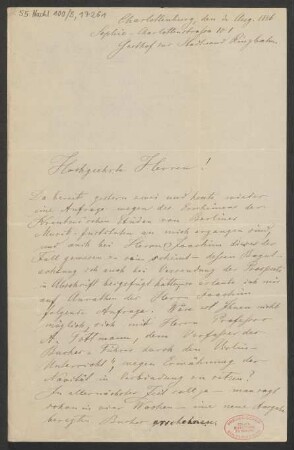 55 Nachl 100/B,
Charlottenburg, den 3. Aug. 1886
Sophie-Charlottenstrasse № 1
Gasthof zur Stadt und Ringbahn
Hochgeehrte Herren!
Da bereits gestern zwei und heute wieder
eine Anfrage wegen des Erscheinens der
Kreutzerschen Etüden von Berliner
Musik-Instituten an mich ergangen sind,
und auch bei Herrn Joachim dieses der
Fall gewesen zu sein scheint – dessen
ich auch bei Versendung der Prospecte
in Abschrift beigefügt hatte, erlaube ich mir
auf Anrathen des Herrn Joachim
folgende Anfrage: Wäre es Ihnen nicht
möglich, sich mit Herrn Professor
A. Tottmann, dem Verfasser des
Buches: „Führer durch den Violin-
Unterricht“, wegen Erwähnung der
Novität in Verbindung zu setzen?
In allernächster Zeit soll ja – man sagt
schon in vier Wochen – eine neue Ausgabe
besagten Buches erscheinen.